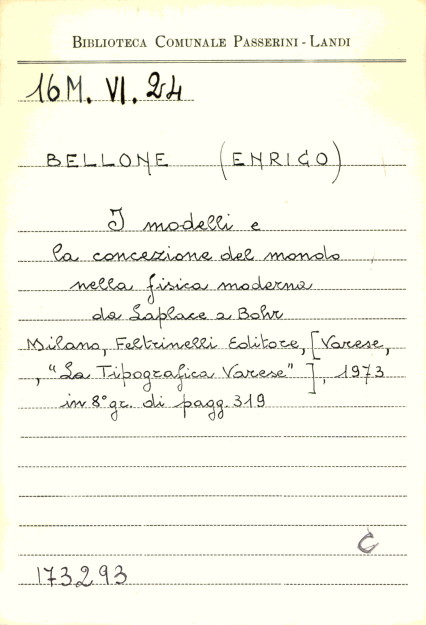 BIBLIOTECA COMUNALE PASSERINI - LANDI
16 M. VI. 24
BELLONE (ENRICO)
I modelli e
la concezione del mondo
nella fisica moderna
da Laplace a Bohr
Milano, Feltrinelli Editore, [Varese,
, "La Tipografica Varese"], 1973
in 8° gr. di pagg. 319
C
173293